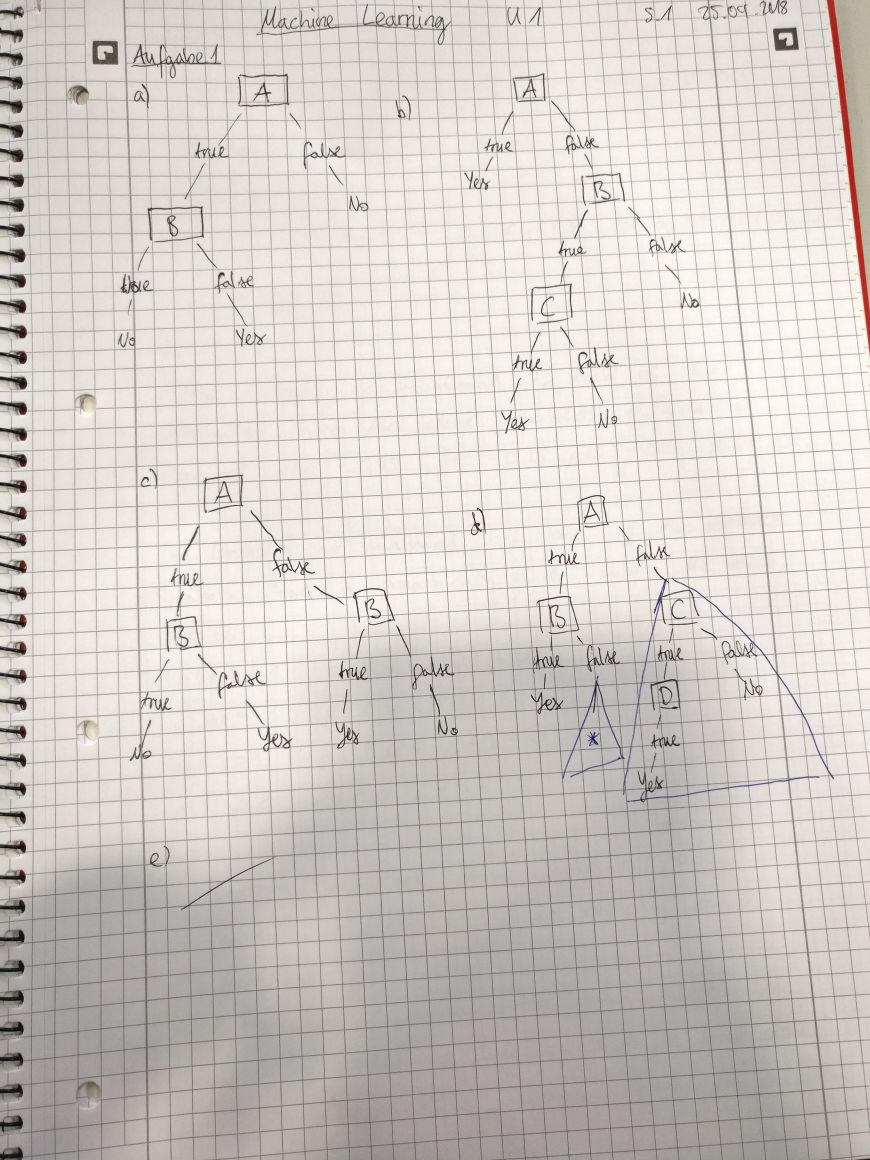 Machine Learning U1 S.1 25.09.2018
Aufgabe 1
a)
A
true false
B No
true false
No Yes
b)
A
true false
Yes B
true false
C No
true false
Yes No
c)
A
true false
B B
true false true false
No Yes Yes No
d)
A
true false
B C
true false true false
Yes * D No
true
Yes
e)